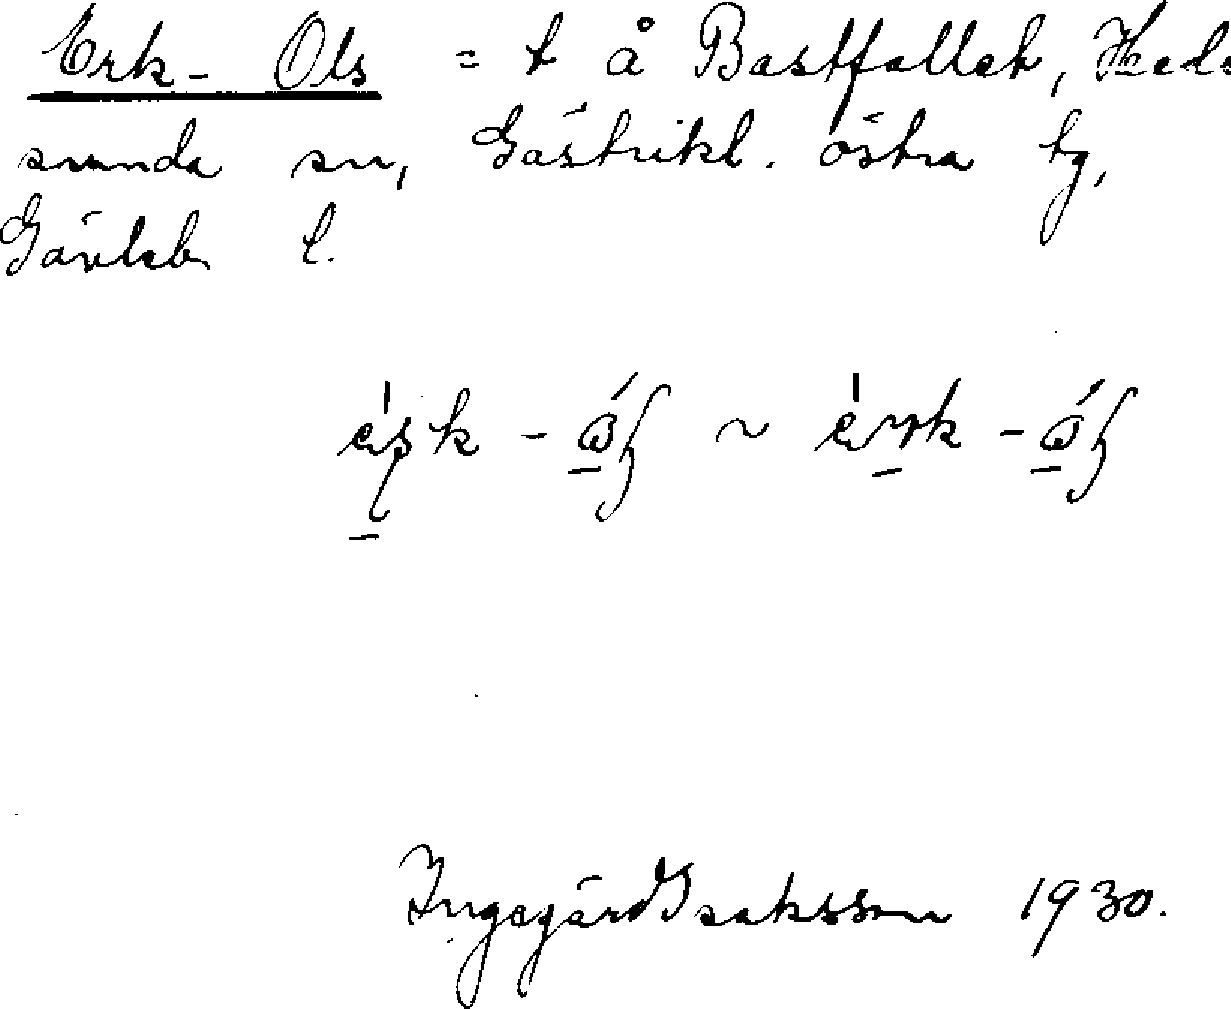 Erk-Ols = t å Bastfallet, Heds
sunda sn, Gästrikl. östra tg,
Gävleb l.
Ingegärd Isaksson 1930.